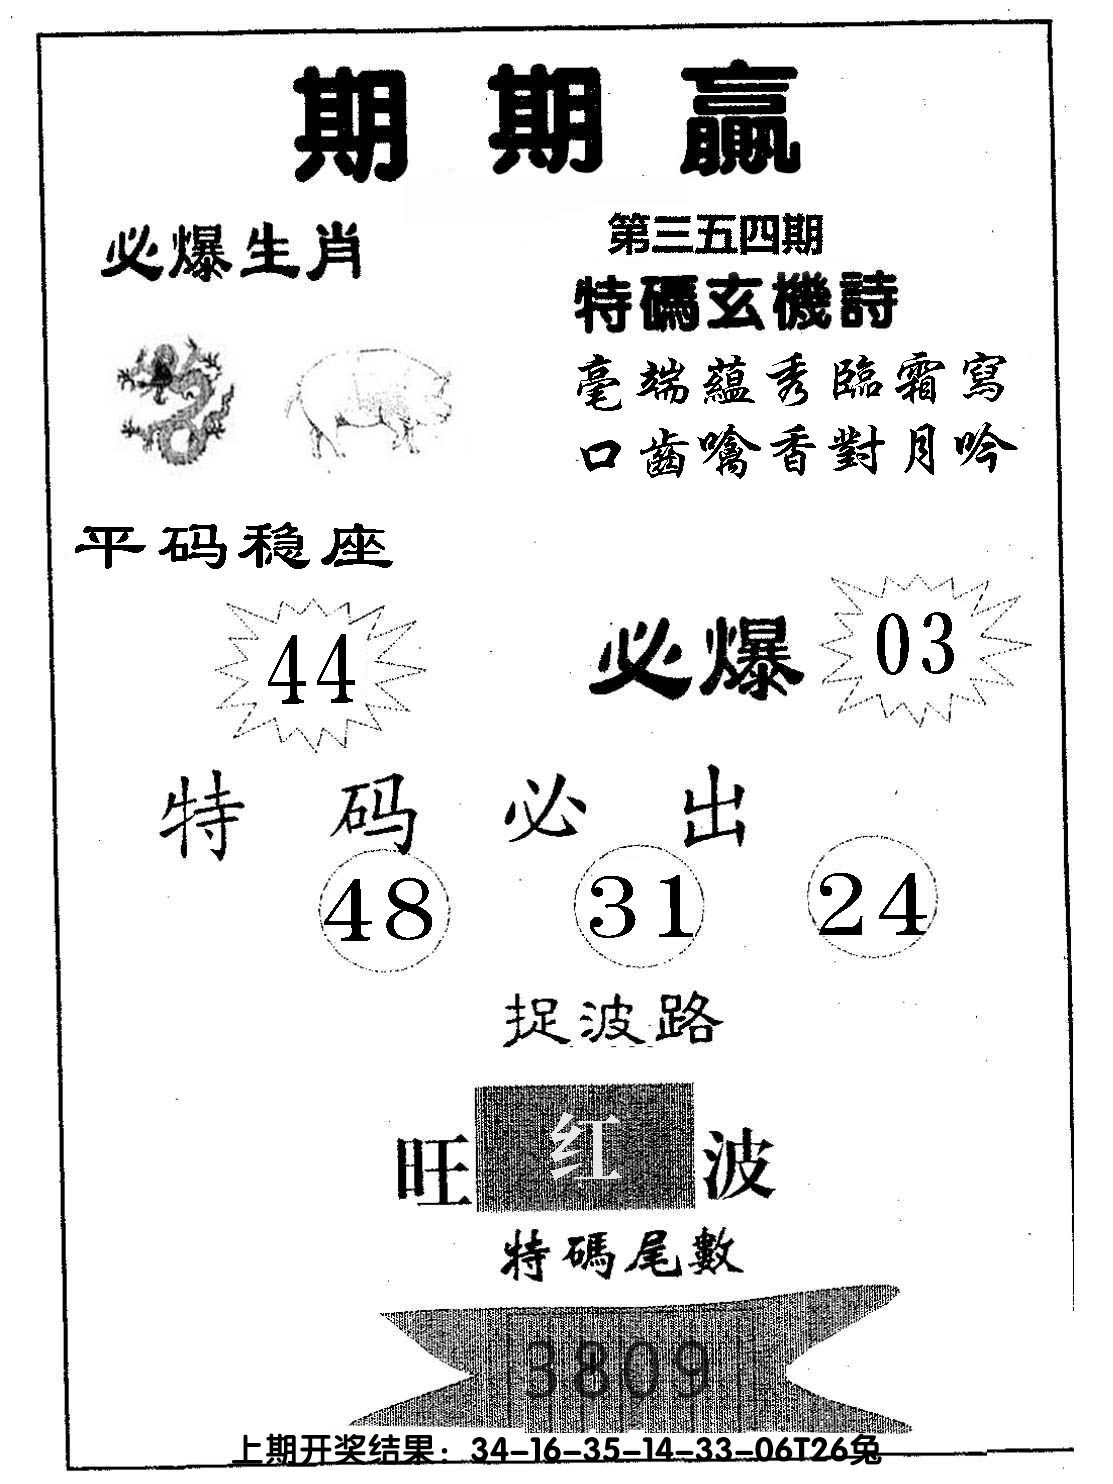 期期赢
必爆生肖
第三五四期
特碼玄機詩
毫端蘊秀臨霜寫
口齒噙香對月吟
平码稳座
44
必爆
03
特码必出
48 31 24
捉波路
旺红波
特碼尾數
3809
上期开奖结果：34-16-35-14-33-06T26兔